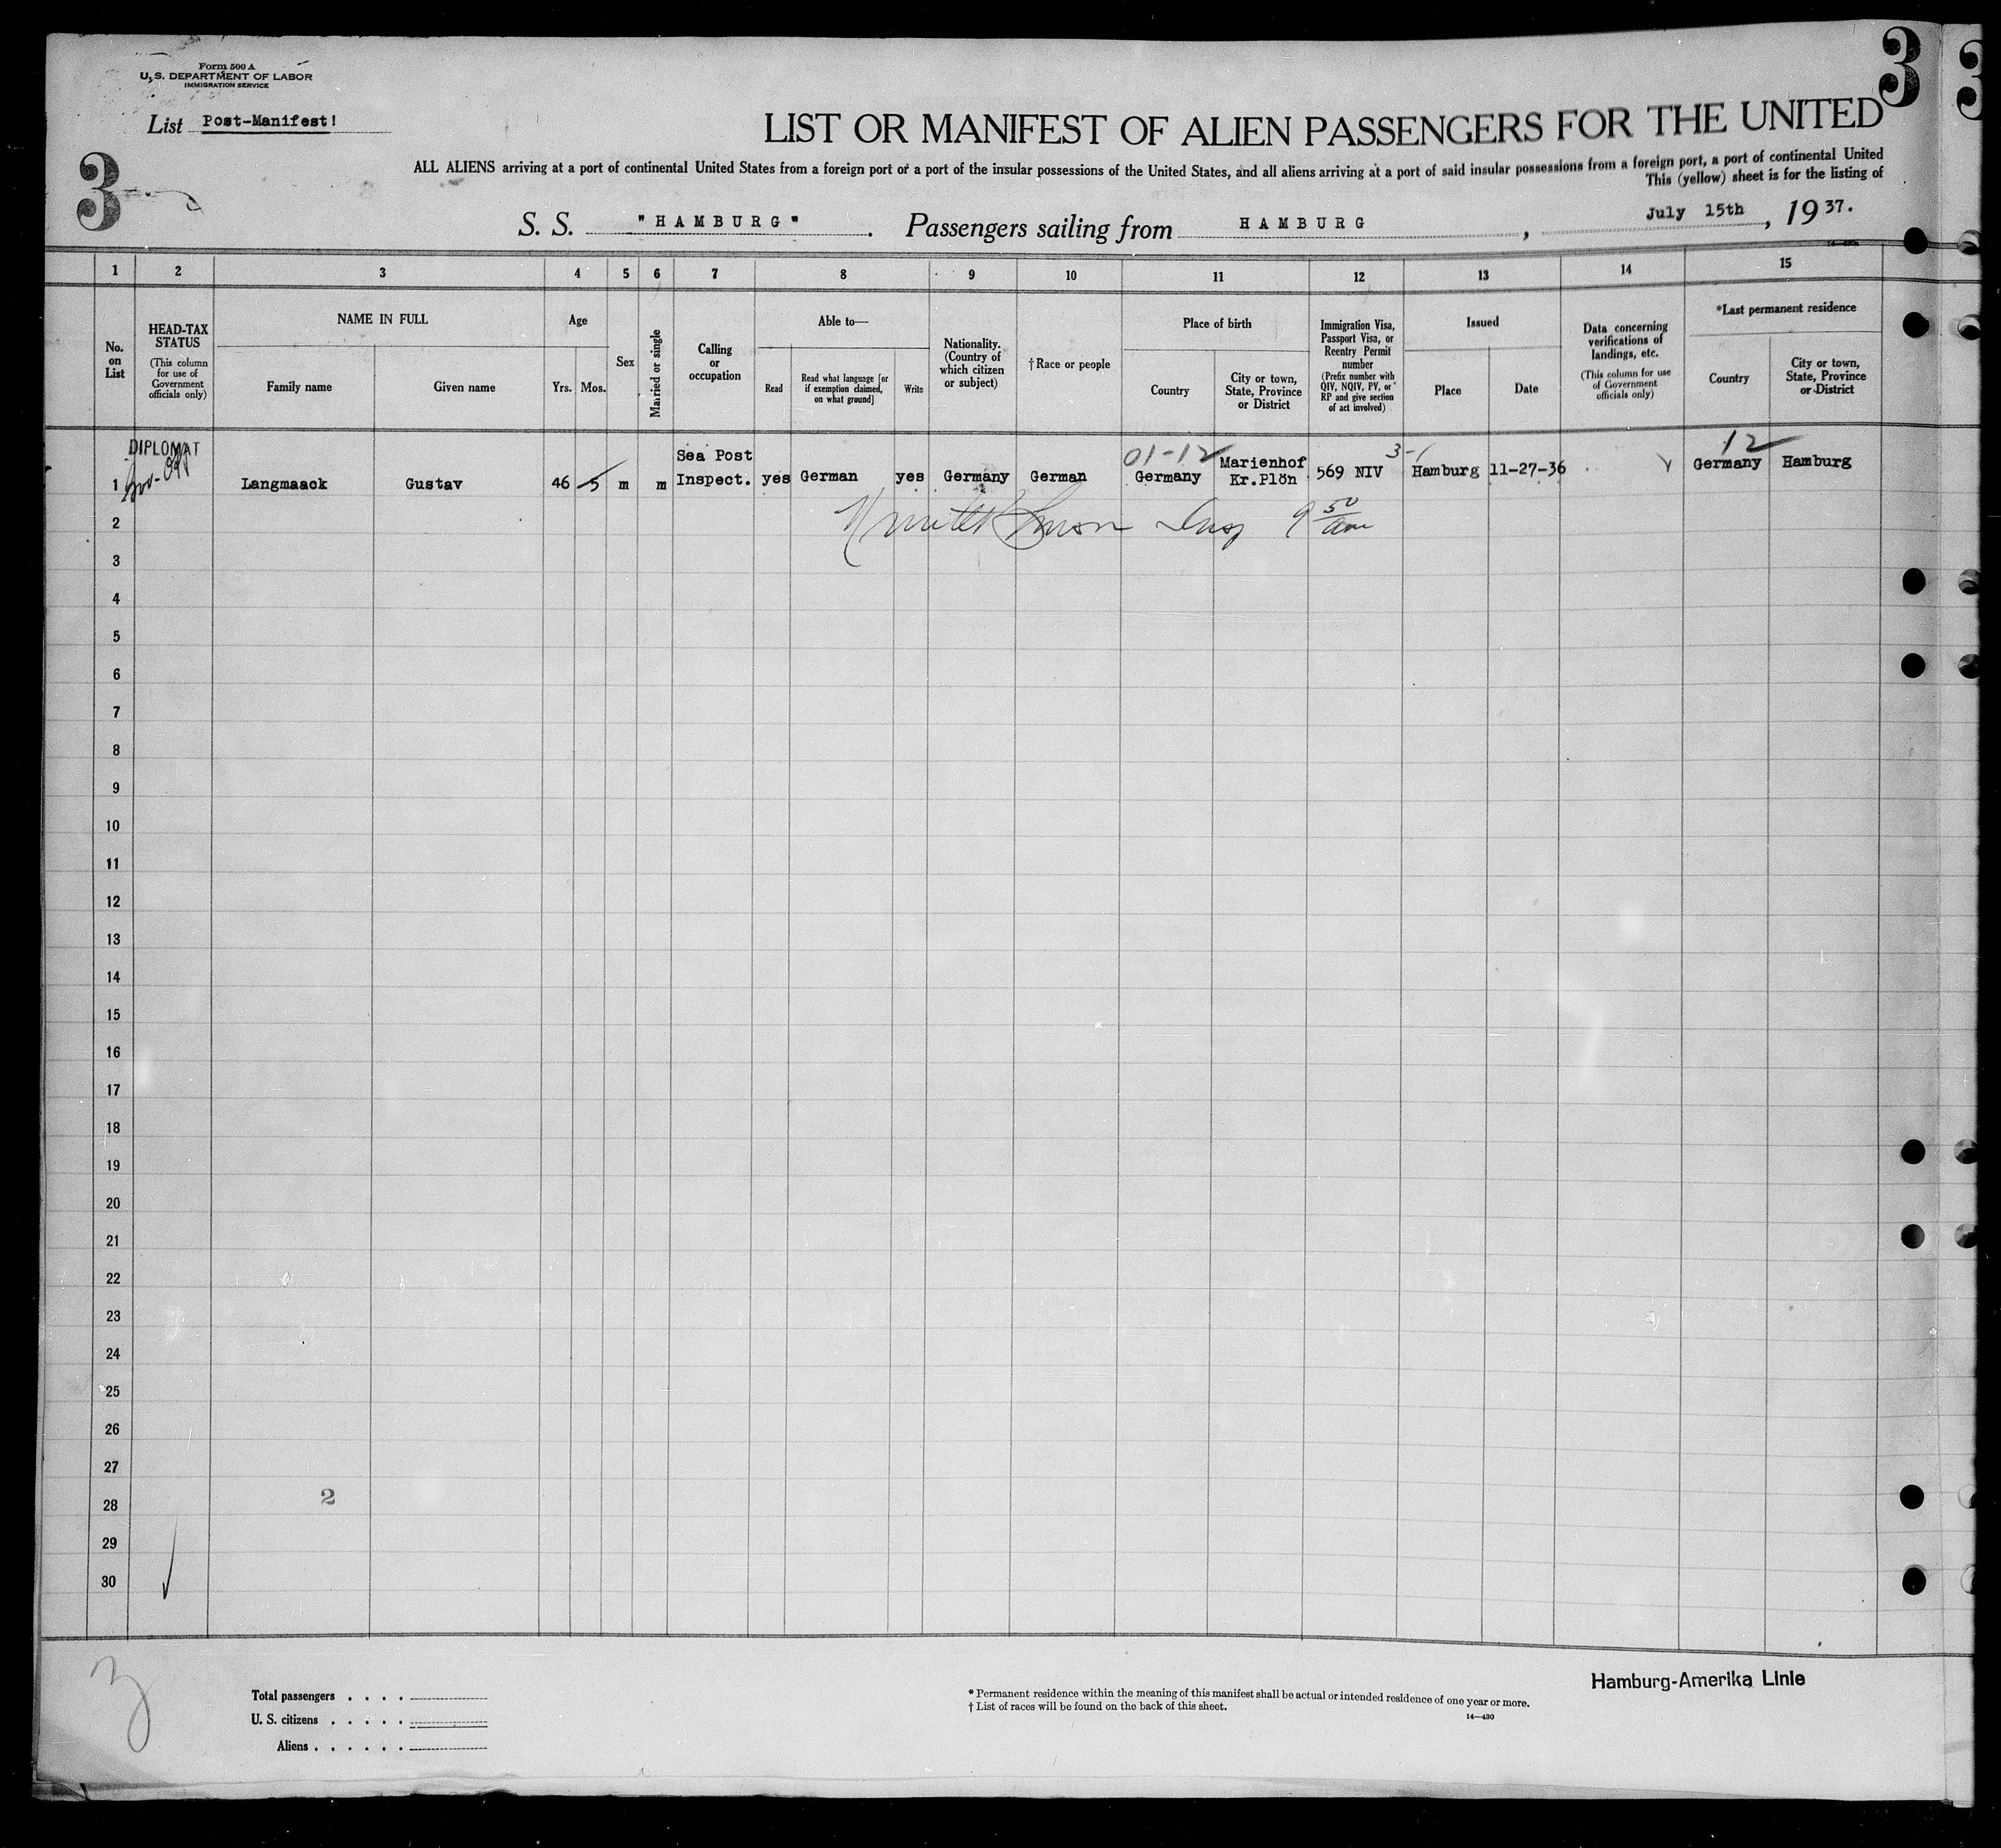 Form 500 A
U. S. DEPARTMENT OF LABOR
IMMIGRATION SERVICE
3
3
List Post-Manifest!
LIST OR MANIFEST OF ALIEN PASSENGERS FOR THE UNITED
ALL ALIENS arriving at a port of continental United States from a foreign port or a port of the insular possessions of the United States, and all aliens arriving at a port of said insular possessions from a foreign port, a port of continental United
This (yellow) sheet is for the listing of
3
S. S. "HAMBURG". Passengers sailing from HAMBURG, July 15th, 1937.
1 2 3 4 5 6 7 8 9 10 11 12 13 14 15
No. on List
HEAD-TAX STATUS
(This column for use of Government officials only)
NAME IN FULL
Family name
Given name
Age
Yrs. Mos.
Sex
Married or single
Calling or occupation
Able to—
Read
Read what language [or if exemption claimed, on what ground]
Write
Nationality. (Country of which citizen or subject)
†Race or people
Place of birth
Country
City or town, State, Province or District
Immigration Visa, Passport Visa, or Reentry Permit number
(Prefix number with QIV, NQIV, PV, or RP and give section of act involved)
Issued
Place
Date
Data concerning verifications of landings, etc.
(This column for use of Government officials only)
*Last permanent residence
Country
City or town, State, Province or District
DIPLOMAT
01-12
3-1
12
1 Langmaack Gustav 46 5 m m Sea Post Inspect. yes German yes Germany German Germany Marienhof Kr.Plön 569 NIV Hamburg 11-27-36 Germany Hamburg
2 9 50 am
3
4
5
6
7
8
9
10
11
12
13
14
15
16
17
18
19
20
21
22
23
24
25
26
27
28 2
29
30
3
Total passengers . . . .
U. S. citizens . . . . .
Aliens . . . . . .
* Permanent residence within the meaning of this manifest shall be actual or intended residence of one year or more.
† List of races will be found on the back of this sheet.
14—430
Hamburg-Amerika Linie